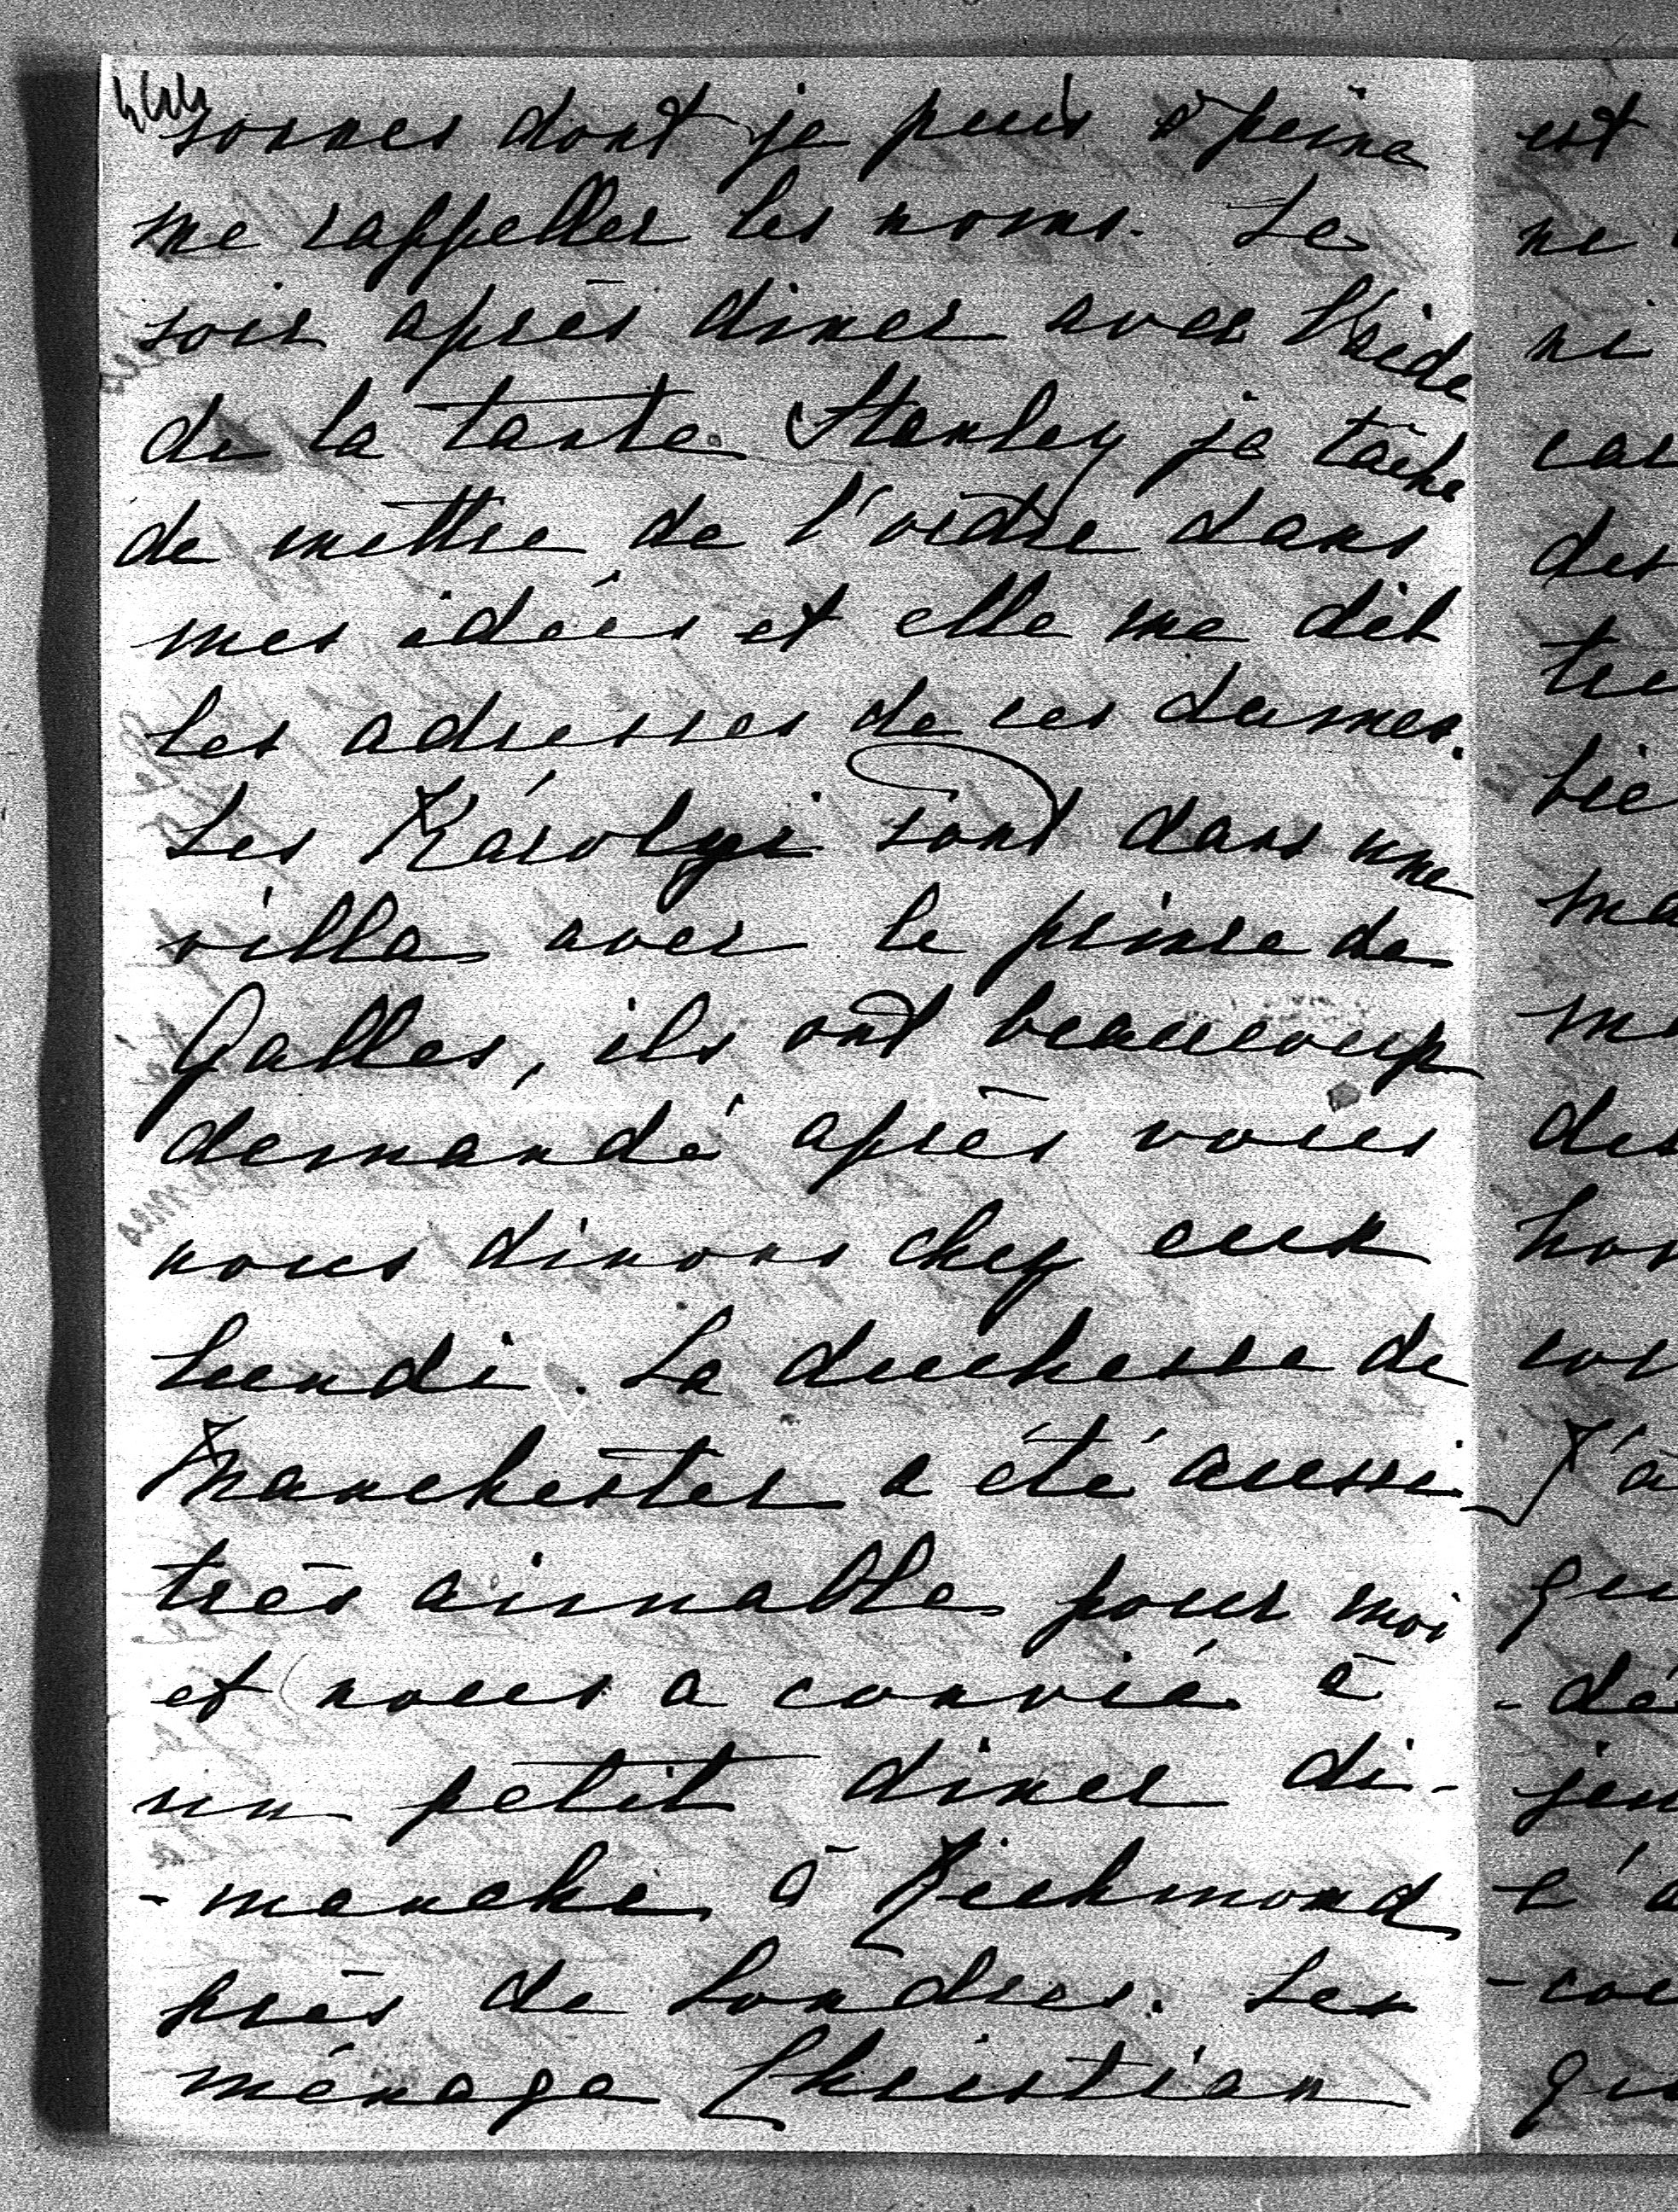 sonnes dont je puis à peine
me rappeller les noms. Le
soir après diner avec l'aide
de la tante Stanley je tâche
de mettre de l'ordre dans
mes idées et elle me dit
les adresses de ces dames.
Les Károlyi sont dans une
villa avec le prince de
Galles, ils ont beaucoup
demandé après vous
nous dinons chez eux
lundi. La duchesse de
Manchester a été aussi
très aimable pour moi
et nous a convié à
un petit diner di-
-manche à Richmond
près de Londres. Les
ménage Christian
est
ne
ni
car
des
bie
ma
des
J'a
qu
-dé